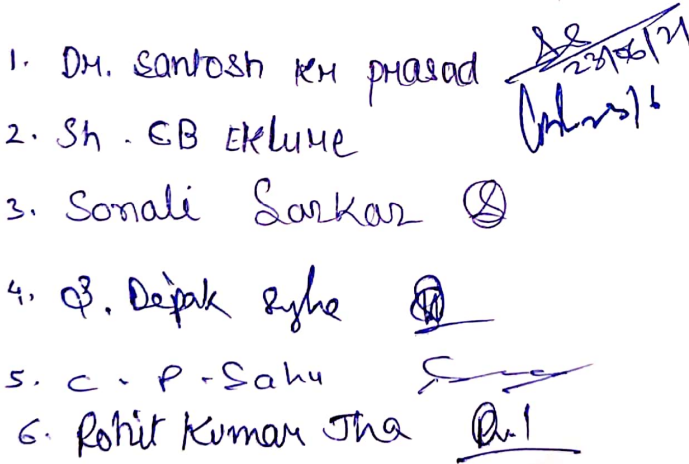 1. DR. Santosh KR PRASAD 23/06/21
2. Sh. CB EKLURE
3. Sonali Sarkar
4. Depak
5. C. P. Sahu
6. Rohit Kumar Jha